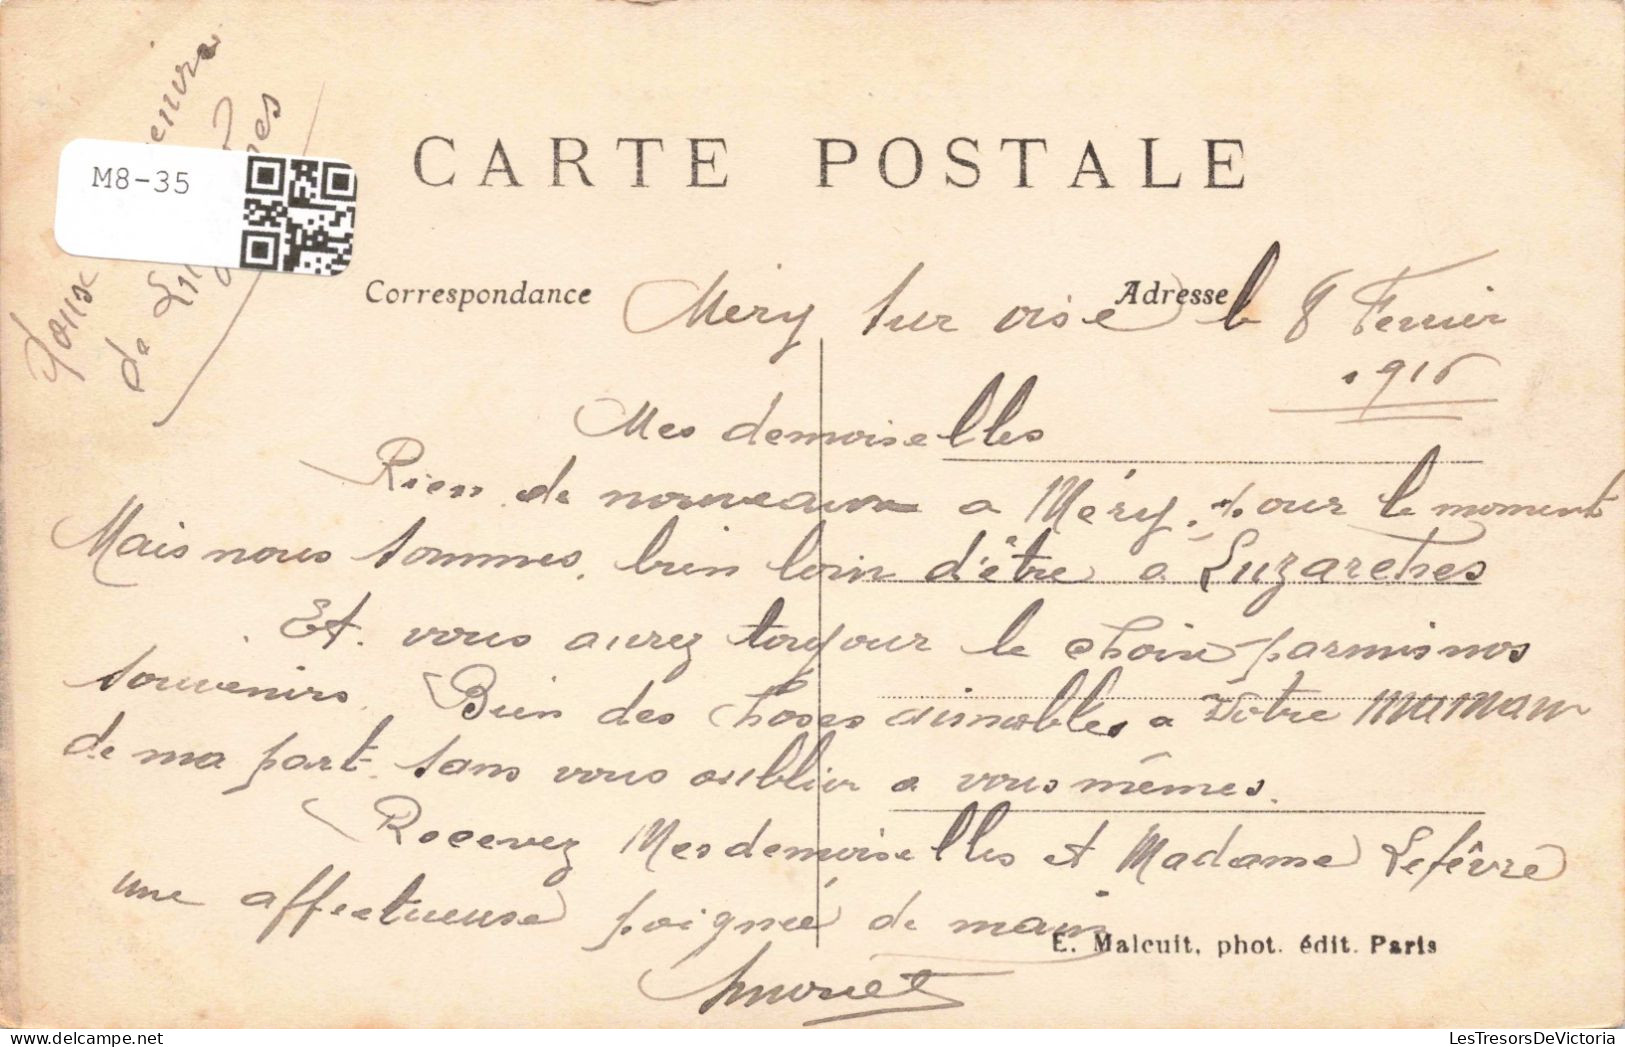 M8-35
CARTE POSTALE
Correspondance
Adresse
Mery sur oise le 8 Fevrier
1916
Mes demoiselles
Rien de nouveaux a Méry. pour le moment
Mais nous sommes, bien loin d'être a Luzarches
Et. vous aurez toujour le choix parmis nos
souvenirs. Bien des choses aimables a Votre maman
de ma part. sans vous oublier a vous mêmes.
Recevez Mesdemoiselles et Madame Lefêvre
une affectueuse poignée de main
E. Malcuit, phot. édit. Paris
LesTresorsDeVictoria